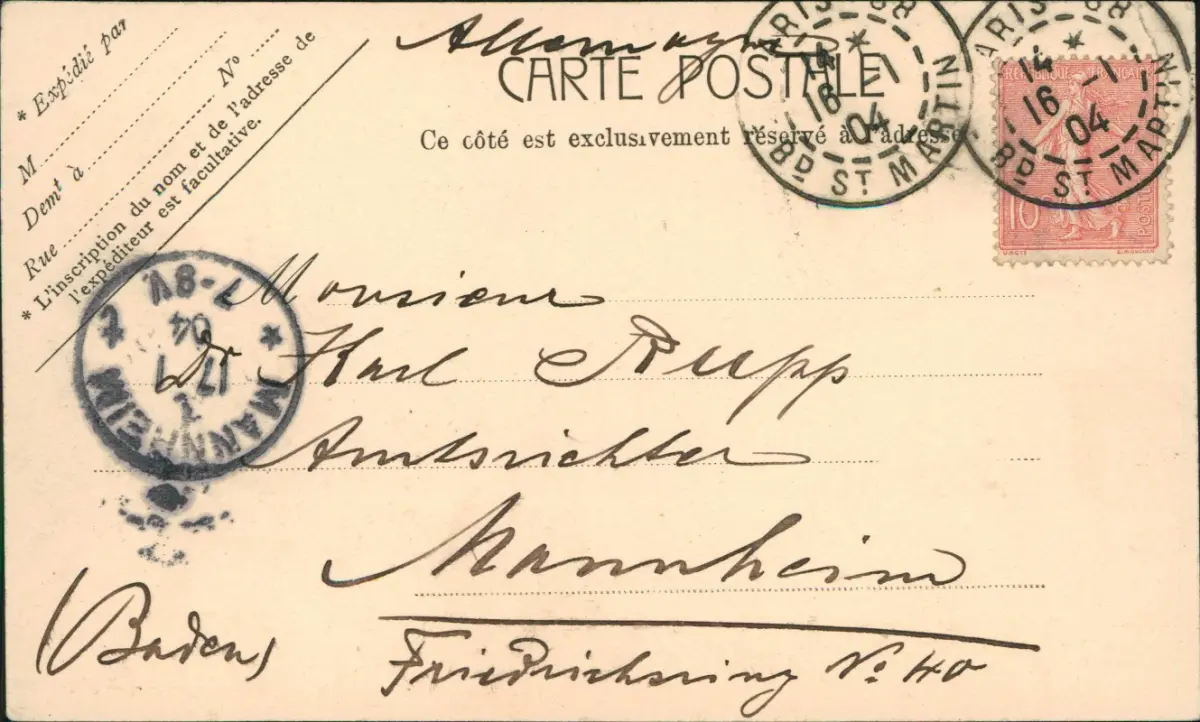 * Expédié par
M
Demt à
Rue
No
* L'inscription du nom et de l'adresse de
l'expéditeur est facultative.
Allemagne
CARTE POSTALE
Ce côté est exclusivement réservé à l'adresse
PARIS 68
14
16 -1
04
BD ST MARTIN
PARIS 68
14
16 -1
04
BD ST MARTIN
REPUBLIQUE FRANÇAISE
10
POSTES
MANNHEIM 2
7-8V
04
17 1
Monsieur
Dr Karl Rupp
Amtsrichter
Mannheim
(Baden)
Friedrichsring No 40